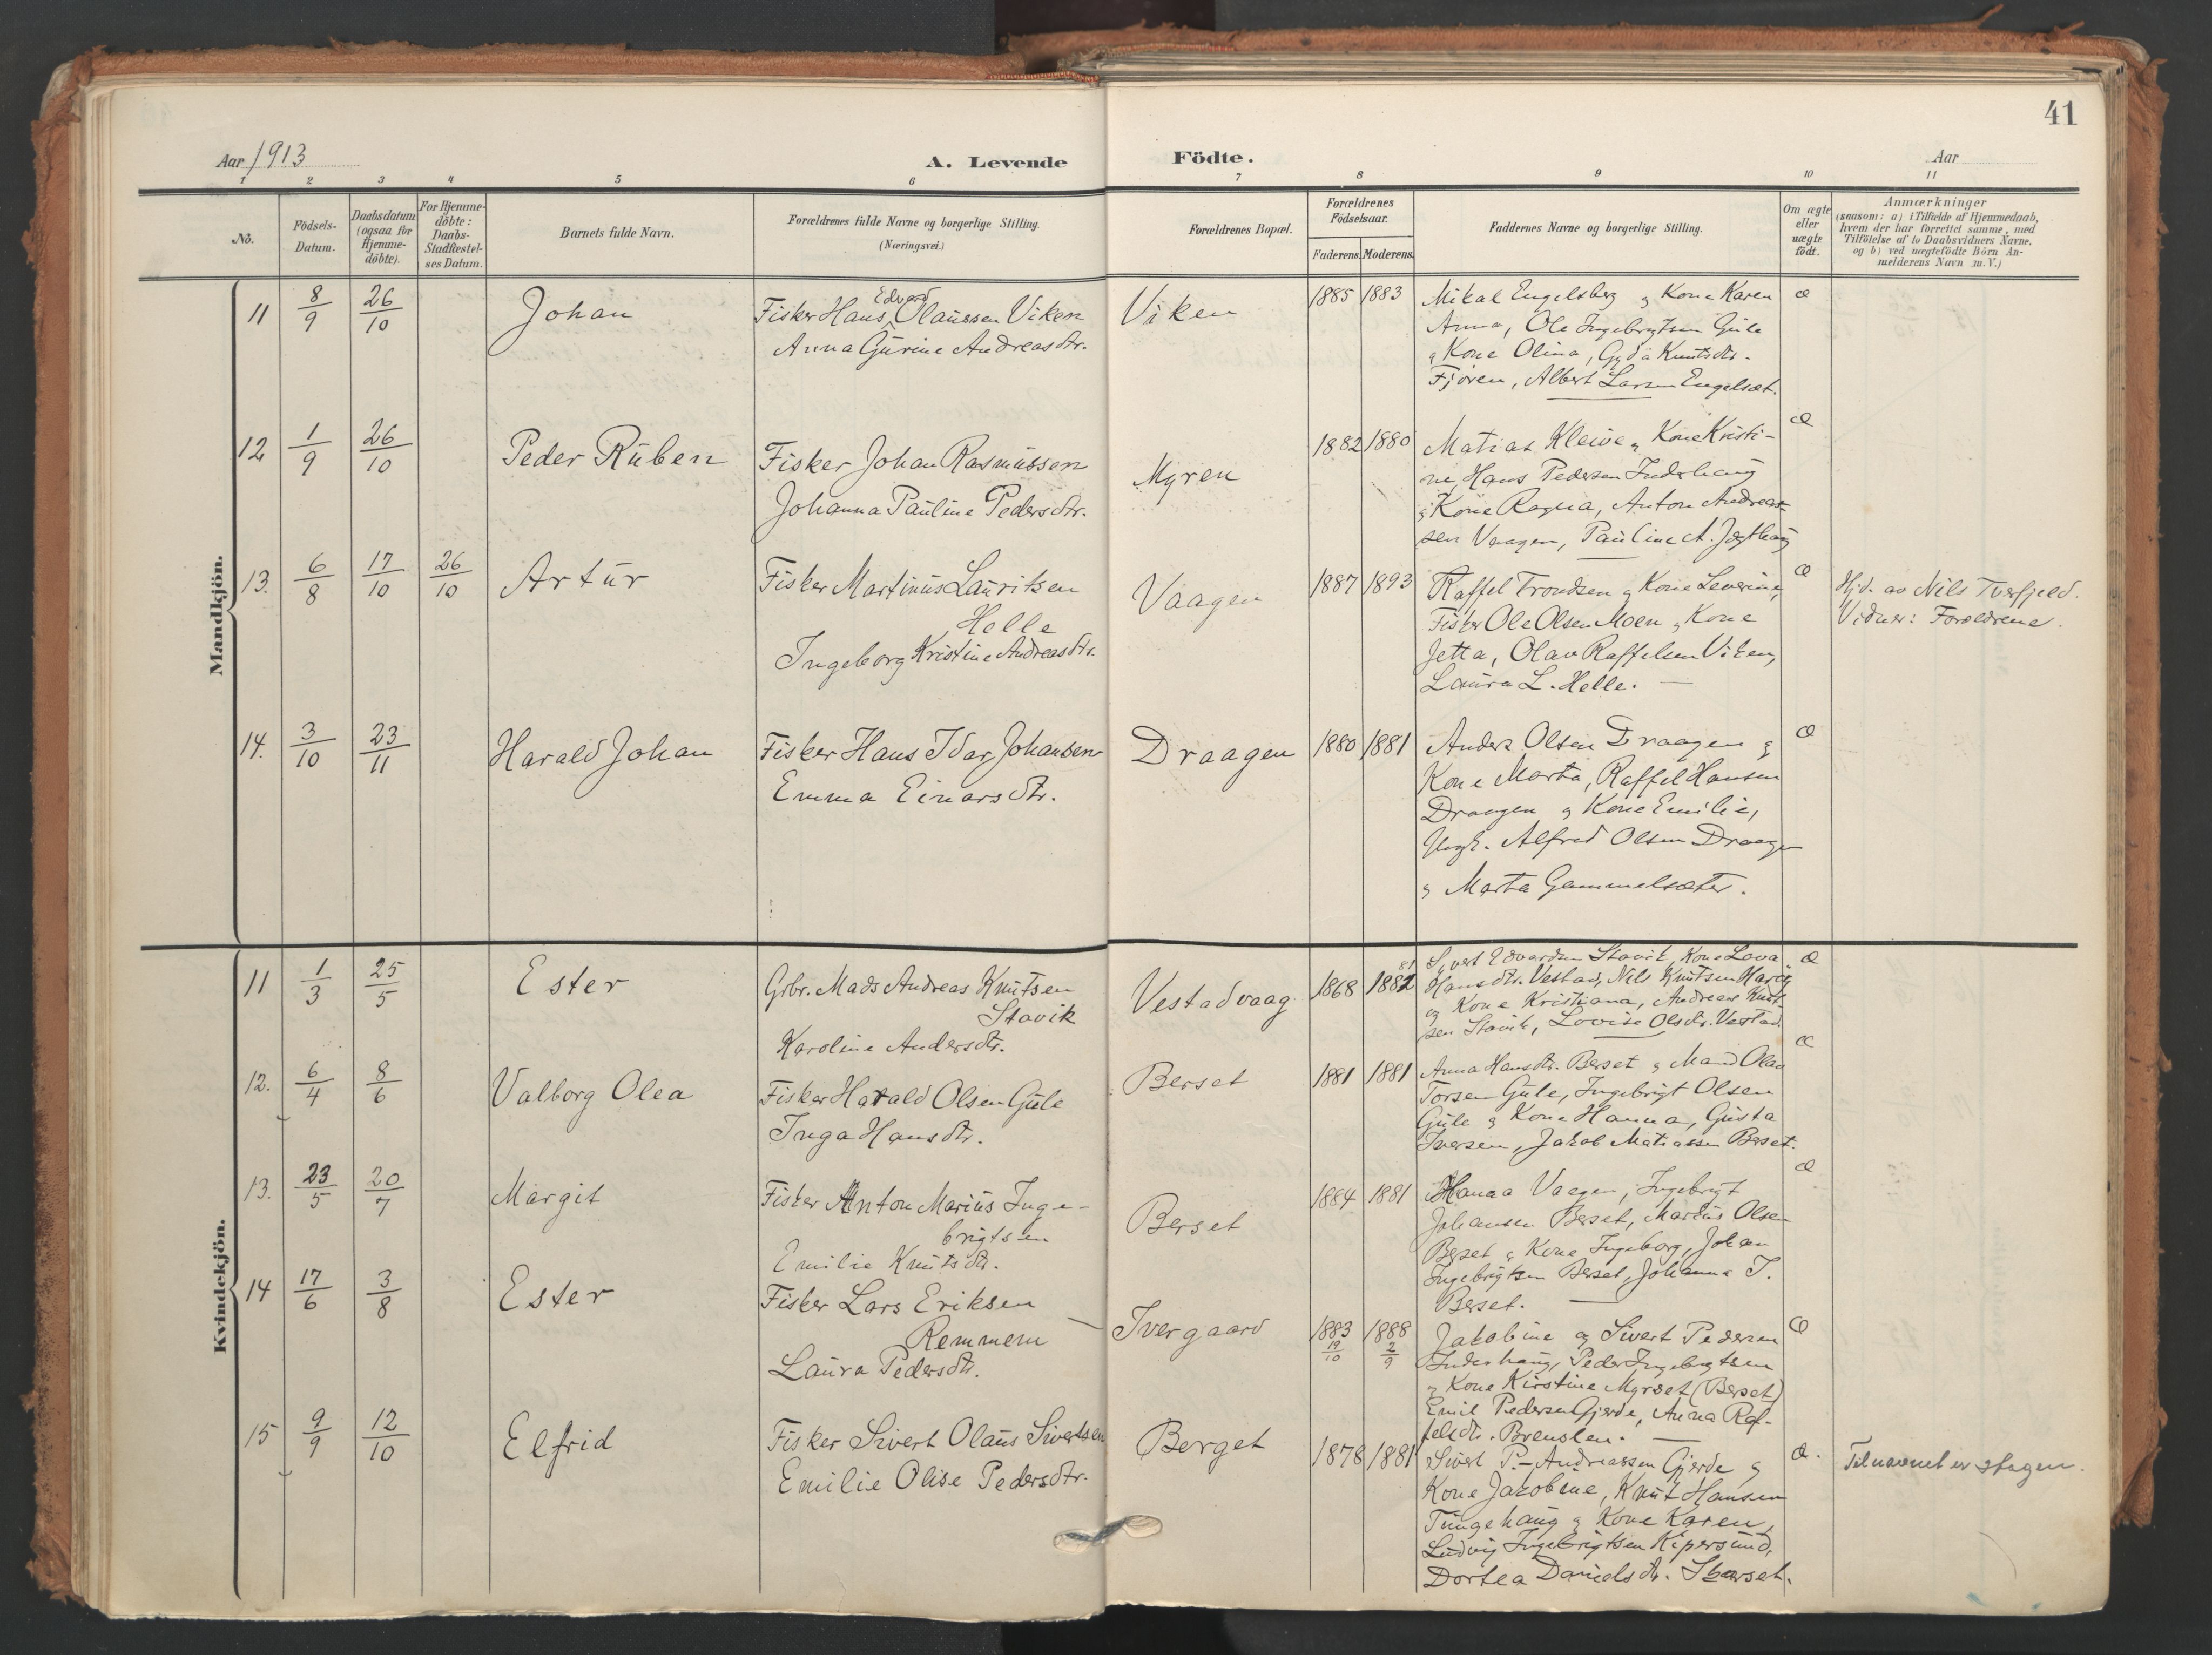 41
Aar 1913
A. Levende Födte.
Aar
1 2 3 4 5 6 7 8 9 10 11
No.
Födsels-
Datum.
Daabsdatum
(ogsaa for
Hjemme-
döbte).
For Hjemme-
döbte:
Daabs-
Stadfæstel-
ses Datum.
Barnets fulde Navn.
Forældrenes fulde Navne og borgerlige Stilling.
(Næringsvei.)
Forældrenes Bopæl.
Forældrenes
Födselsaar.
Faderens. Moderens.
Faddernes Navne og borgerlige Stilling.
Om ægte
eller
uægte
födt.
Anmærkninger
(saasom: a) i Tilfælde af Hjemmedaab,
hvem der har forrettet samme, med
Tilföielse af to Daabsvidners Navne.
og b) ved uægtefödte Börn An-
melderens Navn m. V.)
Mandkjön.
11 8/9 26/10 Johan
Edvard
Fisker Hans Olaussen Viken
Anna Gurine Andreasdtr.
Viken 1885 1883
Mikal Engelsberg og Kone Karen
Anna, Ole Ingebrigtsen Gule
og Kone Olina, Gyda Knutsdtr.
Fjøren, Albert Larsen Engelsæt.
æ
12 1/9 26/10 Peder Ruben
Fisker Johan Rasmussen
Johanna Pauline Pedersdtr.
Myren 1882 1880
Matias Kleive og Kone Kristi-
ne, Hans Pedersen Inderhaug
og Kone Ragna, Anton Andreas-
sen Vaagen, Pauline A. Jægthaug
æ
13. 6/8 17/10 26/10 Artur
Fisker Martinus Lauritsen
Helle
Ingeborg Kristine Andreasdtr.
Vaagen 1887 1893
Raffel Trondsen og Kone Leverine,
Fisker Ole Olsen Moen og Kone
Jetta, Olav Raffelsen Viken,
Laura L. Helle.
æ
Hjd. av Nils Tverfjeld.
Vidner: Forældrene.
14. 3/10 23/11 Harald Johan
Fisker Hans Idar Johansen
Emma Einarsdtr.
Draagen 1880 1881
Anders Olsen Draagen og
Kone Marta, Raffel Hansen
Draagen og Kone Emilie,
Ungk. Alfred Olsen Draagen
og Marta Gammelsæter.
æ
Kvindekjön.
11 1/3 25/5 Ester
Grbr. Mads Andreas Knutsen
Stavik
Karoline Andersdtr.
Vestadvaag 1868 1882
81
Syvert Edvardsen Stavik, Kone Lova
Hansdtr. Vestad, Nils Knutsen
og Kone Kristiana, Andreas Knut-
sen Stavik, Lovise Olsdtr. Vestad.
æ
12. 6/4 8/6 Valborg Olea
Fisker Harald Olsen Gule
Inga Hansdtr.
Berset 1881 1881
Anna Hansdtr. Berset og Mand Olav
Torsen Gule, Ingebrigt Olsen
Gule og Kone Hanna, Gusta
Iversen, Jakob Matiassen Berset.
æ
13. 23/5 20/7 Margit
Fisker Anton Marius Inge-
brigtsen
Emilie Knutsdtr.
Berset 1884 1881
Hanna Vaagen, Ingebrigt
Johansen Berset, Marius Olsen
Berset og Kone Ingeborg, Johan
Ingebrigtsen Berset, Johanna I.
Berset.
æ
14 17/6 3/8 Ester
Fisker Lars Eriksen
Remmem
Laura Pedersdtr.
Ivergaard 1883 19/10 1888 2/9
Jakobine og Sivert Pedersen
Inderhaug, Peder Ingebrigtsen
og Kone Kirstine Myrset (Berset)
Emil Pedersen Gjerde, Anna Raf-
felsdtr. Brenslen.
æ
15 9/9 12/10 Elfrid
Fisker Sivert Olaus Sivertsen
Emilie Olise Pedersdtr.
Berget 1878 1881
Sivert P. Andreassen Gjerde og
Kone Jakobine, Knut Hansen
Tungehaug og Kone Karen,
Ludvig Ingebrigtsen Kipersund,
Dortea Danielsdtr. Storset.
æ.
Tilnavnet er Hagen.